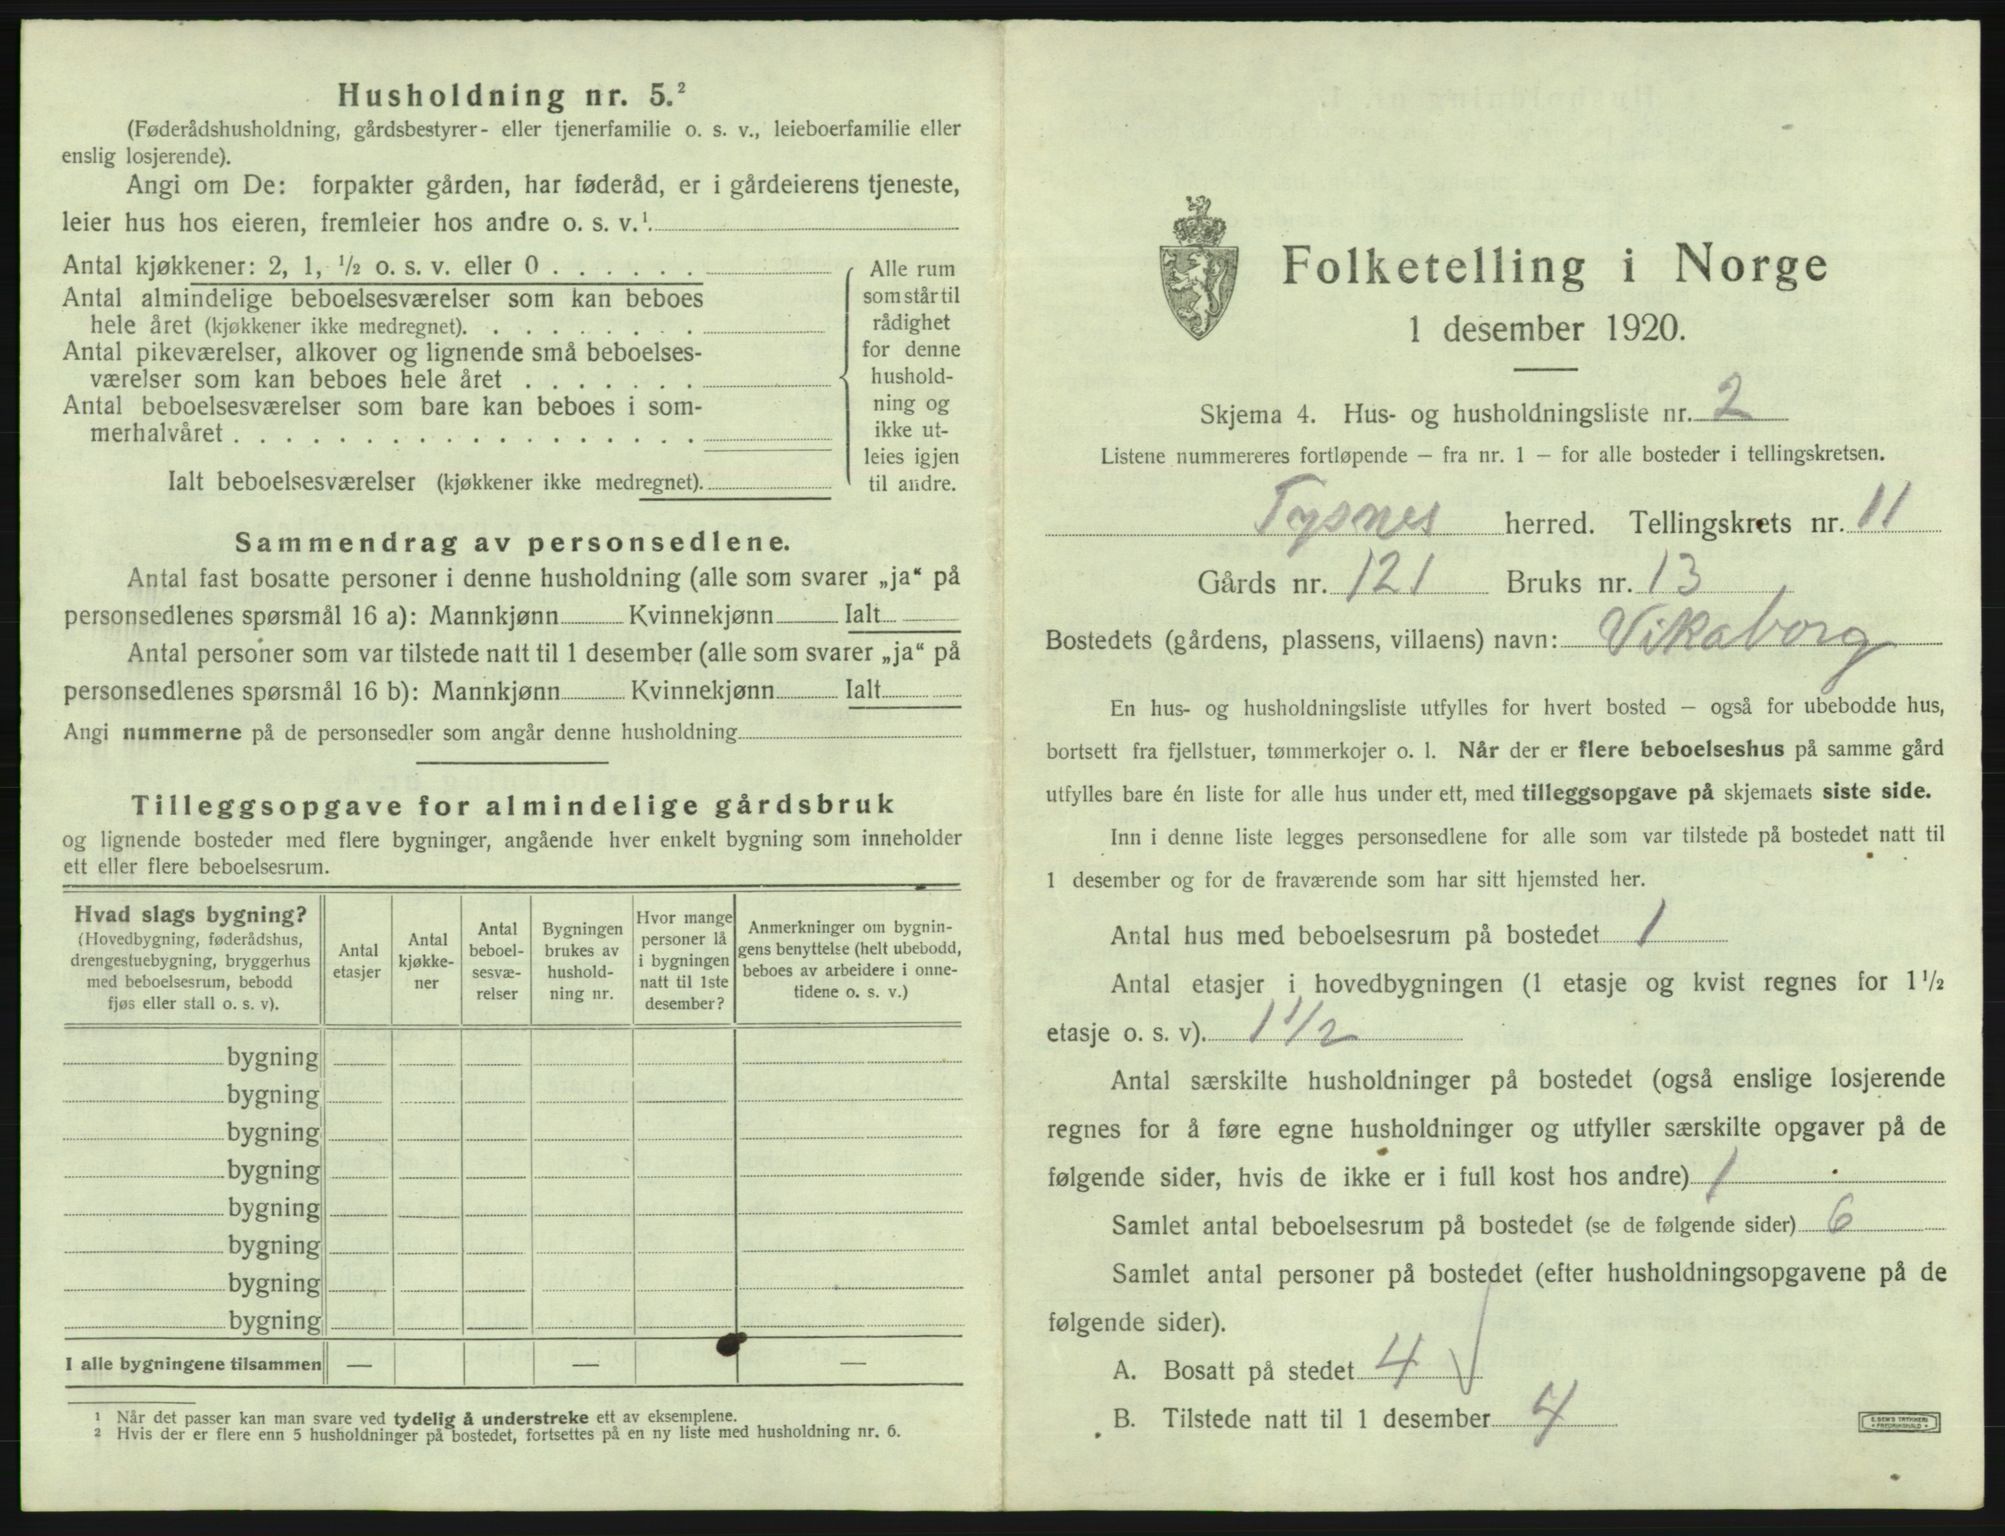 Husholdning nr. 5.²
(Føderådshusholdning, gårdsbestyrer- eller tjenerfamilie o. s. v., leieboerfamilie eller
enslig losjerende).
Angi om De: forpakter gården, har føderåd, er i gårdeierens tjeneste,
leier hus hos eieren, fremleier hos andre o. s. v.¹
Antal kjøkkener: 2, 1, ½ o. s. v. eller 0 . . . . . .
Antal almindelige beboelsesværelser som kan beboes
hele året (kjøkkener ikke medregnet). . . . . . . . .
Antal pikeværelser, alkover og lignende små beboelses-
værelser som kan beboes hele året . . . . . . .
Antal beboelsesværelser som bare kan beboes i som-
merhalvåret . . . . . . . . . . . . . . . . . .
Ialt beboelsesværelser (kjøkkener ikke medregnet).
Alle rum
som står til
rådighet
for denne
hushold-
ning og
ikke ut-
leies igjen
til andre.
Sammendrag av personsedlene.
Antal fast bosatte personer i denne husholdning (alle som svarer „ja“ på
personsedlenes spørsmål 16 a): Mannkjønn Kvinnekjønn Ialt
Antal personer som var tilstede natt til 1 desember (alle som svarer „ja“ på
personsedlenes spørsmål 16 b): Mannkjønn Kvinnekjønn Ialt
Angi nummerne på de personsedler som angår denne husholdning
Tilleggsopgave for almindelige gårdsbruk
og lignende bosteder med flere bygninger, angående hver enkelt bygning som inneholder
ett eller flere beboelsesrum.
Hvad slags bygning?
(Hovedbygning, føderådshus,
drengestuebygning, bryggerhus
med beboelsesrum, bebodd
fjøs eller stall o. s. v).
Antal
etasjer
Antal
kjøkke-
ner
Antal
beboel-
sesvæ-
relser
Bygningen
brukes av
hushold-
ning nr.
Hvor mange
personer lå
i bygningen
natt til 1ste
desember?
Anmerkninger om bygnin-
gens benyttelse (helt ubebodd,
beboes av arbeidere i onne-
tidene o. s. v.)
bygning
bygning
bygning
bygning
bygning
bygning
bygning
bygning
I alle bygningene tilsammen — — —
¹ Når det passer kan man svare ved tydelig å understreke ett av eksemplene.
² Hvis der er flere enn 5 husholdninger på bostedet, fortsettes på en ny liste med husholdning nr. 6.
Folketelling i Norge
1 desember 1920.
Skjema 4. Hus- og husholdningsliste nr. 2
Listene nummereres fortløpende – fra nr. 1 – for alle bosteder i tellingskretsen.
Tysnes herred. Tellingskrets nr. 11
Gårds nr. 121 Bruks nr. 13
Bostedets (gårdens, plassens, villaens) navn: Vikaborg
En hus- og husholdningsliste utfylles for hvert bosted – også for ubebodde hus,
bortsett fra fjellstuer, tømmerkojer o. l. Når der er flere beboelseshus på samme gård
utfylles bare én liste for alle hus under ett, med tilleggsopgave på skjemaets siste side.
Inn i denne liste legges personsedlene for alle som var tilstede på bostedet natt til
1 desember og for de fraværende som har sitt hjemsted her.
Antal hus med beboelsesrum på bostedet 1
Antal etasjer i hovedbygningen (1 etasje og kvist regnes for 1½
etasje o. s. v). 1 1/2
Antal særskilte husholdninger på bostedet (også enslige losjerende
regnes for å føre egne husholdninger og utfyller særskilte opgaver på de
følgende sider, hvis de ikke er i full kost hos andre) 1
Samlet antal beboelsesrum på bostedet (se de følgende sider) 6
Samlet antal personer på bostedet (efter husholdningsopgavene på de
følgende sider).
A. Bosatt på stedet 4
B. Tilstede natt til 1 desember 4